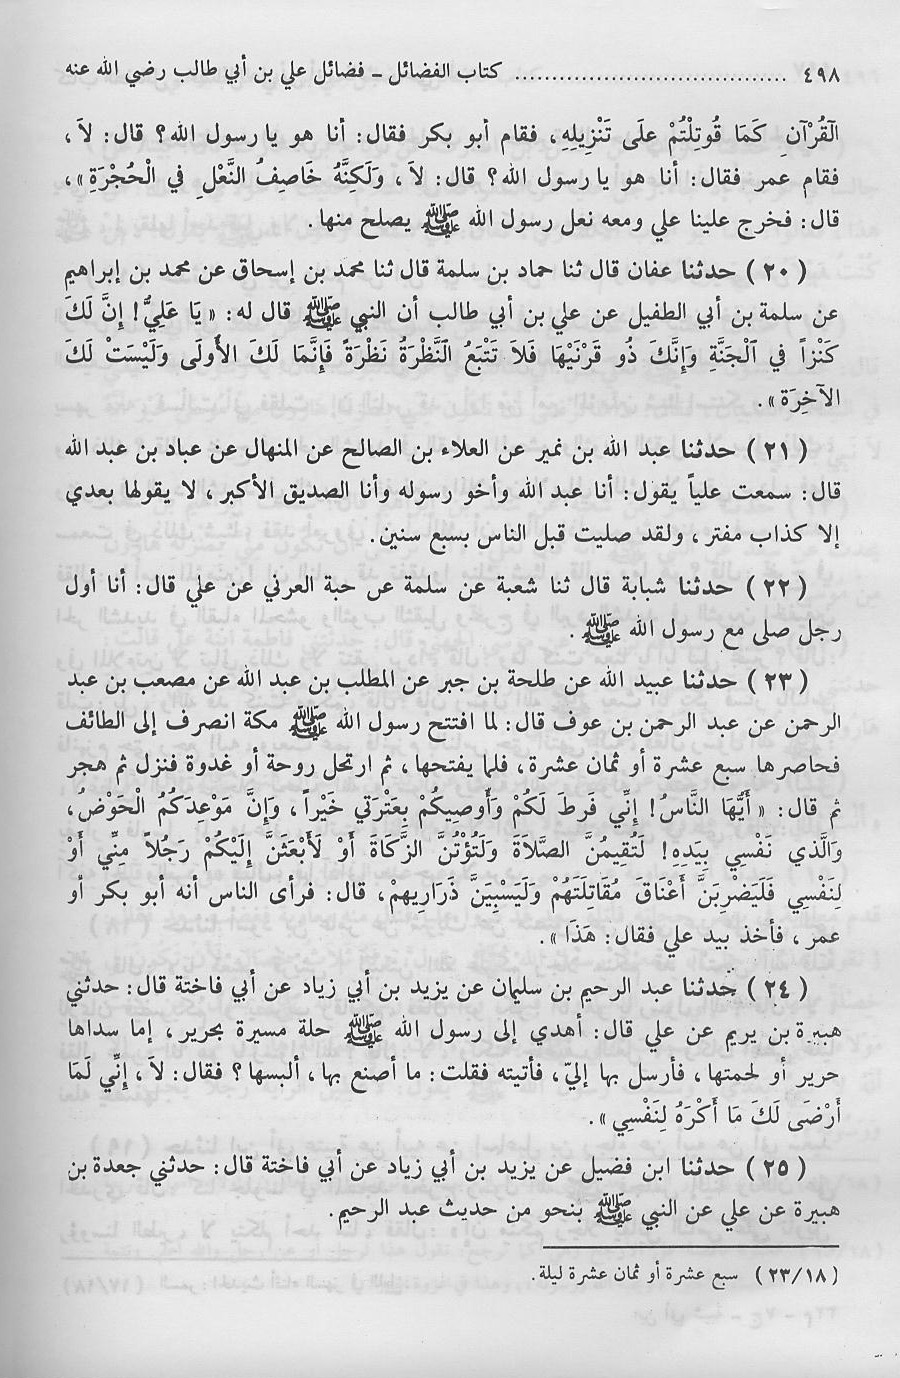 ٤٩٨ ..................................... كتاب الفضائل - فضائل علي بن أبي طالب رضي الله عنه
الْقُرْآنِ كَمَا قُوتِلْتُمْ عَلَى تَنْزِيلِهِ، فقام أبو بكر فقال: أنا هو يا رسول الله؟ قال: لاَ،
فقام عمر فقال: أنا هو يا رسول الله؟ قال: لاَ، وَلَكِنَّهُ خَاصِفُ النَّعْلِ فِي الْحُجْرَةِ»،
قال: فخرج علينا علي ومعه نعل رسول الله ﷺ يصلح منها.
(٢٠) حدثنا عفان قال ثنا حماد بن سلمة قال ثنا محمد بن إسحاق عن محمد بن إبراهيم
عن سلمة بن أبي الطفيل عن علي بن أبي طالب أن النبي ﷺ قال له: «يَا عَلِيُّ! إِنَّ لَكَ
كَنْزاً في الْجَنَّةِ وَإِنَّكَ ذُو قَرْنَيْهَا فَلاَ تَتْبَعُ النَّظْرَةُ نَظْرَةً فَإِنَّمَا لَكَ الأُولَى وَلَيْسَتْ لَكَ
الآخِرَة».
(٢١) حدثنا عبد الله بن نمير عن العلاء بن الصالح عن المنهال عن عباد بن عبد الله
قال: سمعت علياً يقول: أنا عبد الله وأخو رسوله وأنا الصديق الأكبر، لا يقولها بعدي
إلا كذاب مفتر، ولقد صليت قبل الناس بسبع سنين.
(٢٢) حدثنا شبابة قال ثنا شعبة عن سلمة عن حبة العرني عن علي قال: أنا أول
رجل صلى مع رسول الله ﷺ.
(٢٣) حدثنا عبيد الله عن طلحة بن جبر عن المطلب بن عبد الله عن مصعب بن عبد
الرحمن عن عبد الرحمن بن عوف قال: لما افتتح رسول الله ﷺ مكة انصرف إلى الطائف
فحاصرها سبع عشرة أو ثمان عشرة، فلم يفتحها، ثم ارتحل روحة أو غدوة فنزل ثم هجر
ثم قال: «أَيُّهَا النَّاسُ! إِنِّي فَرطَ لَكُمْ وَأُوصِيكُمْ بِعَتْرَتِي خَيْراً، وَإِنَّ مَوْعِدَكُمُ الْحَوْضُ،
وَالَّذي نَفْسِي بِيَدِهِ! لَتُقِيمُنَّ الصَّلاَةَ وَلَتُؤْتُنَّ الزَّكَاةَ أَوْ لأَبْعَثَنَّ إِلَيْكُمْ رَجُلاً مِنِّي أَوْ
لِنَفْسِي فَلَيَضْرِبَنَّ أَعْنَاقَ مُقَاتَلَتَهُمْ وَلَيَسْبِيَنَّ ذَرَارِيهِمْ، قال: فرأى الناس أنه أبو بكر أو
عمر، فأخذ بيد علي فقال: هَذَا».
(٢٤) حدثنا عبد الرحيم بن سليمان عن يزيد بن أبي زياد عن أبي فاختة قال: حدثني
هبيرة بن يريم عن علي قال: أهدي إلى رسول الله ﷺ حلة مسيرة بحرير، إما سداها
حرير أو لحمتها، فأرسل بها إليّ، فأتيته فقلت: ما أصنع بها، ألبسها؟ فقال: لاَ، إِنِّي لَمَا
أَرْضَى لَكَ مَا أَكْرَهُ لِنَفْسِي».
(٢٥) حدثنا ابن فضيل عن يزيد بن أبي زياد عن أبي فاختة قال: حدثني جعدة بن
هبيرة عن علي عن النبي ﷺ بنحو من حديث عبد الرحيم.
(٢٣/١٨) سبع عشرة أو ثمان عشرة ليلة.